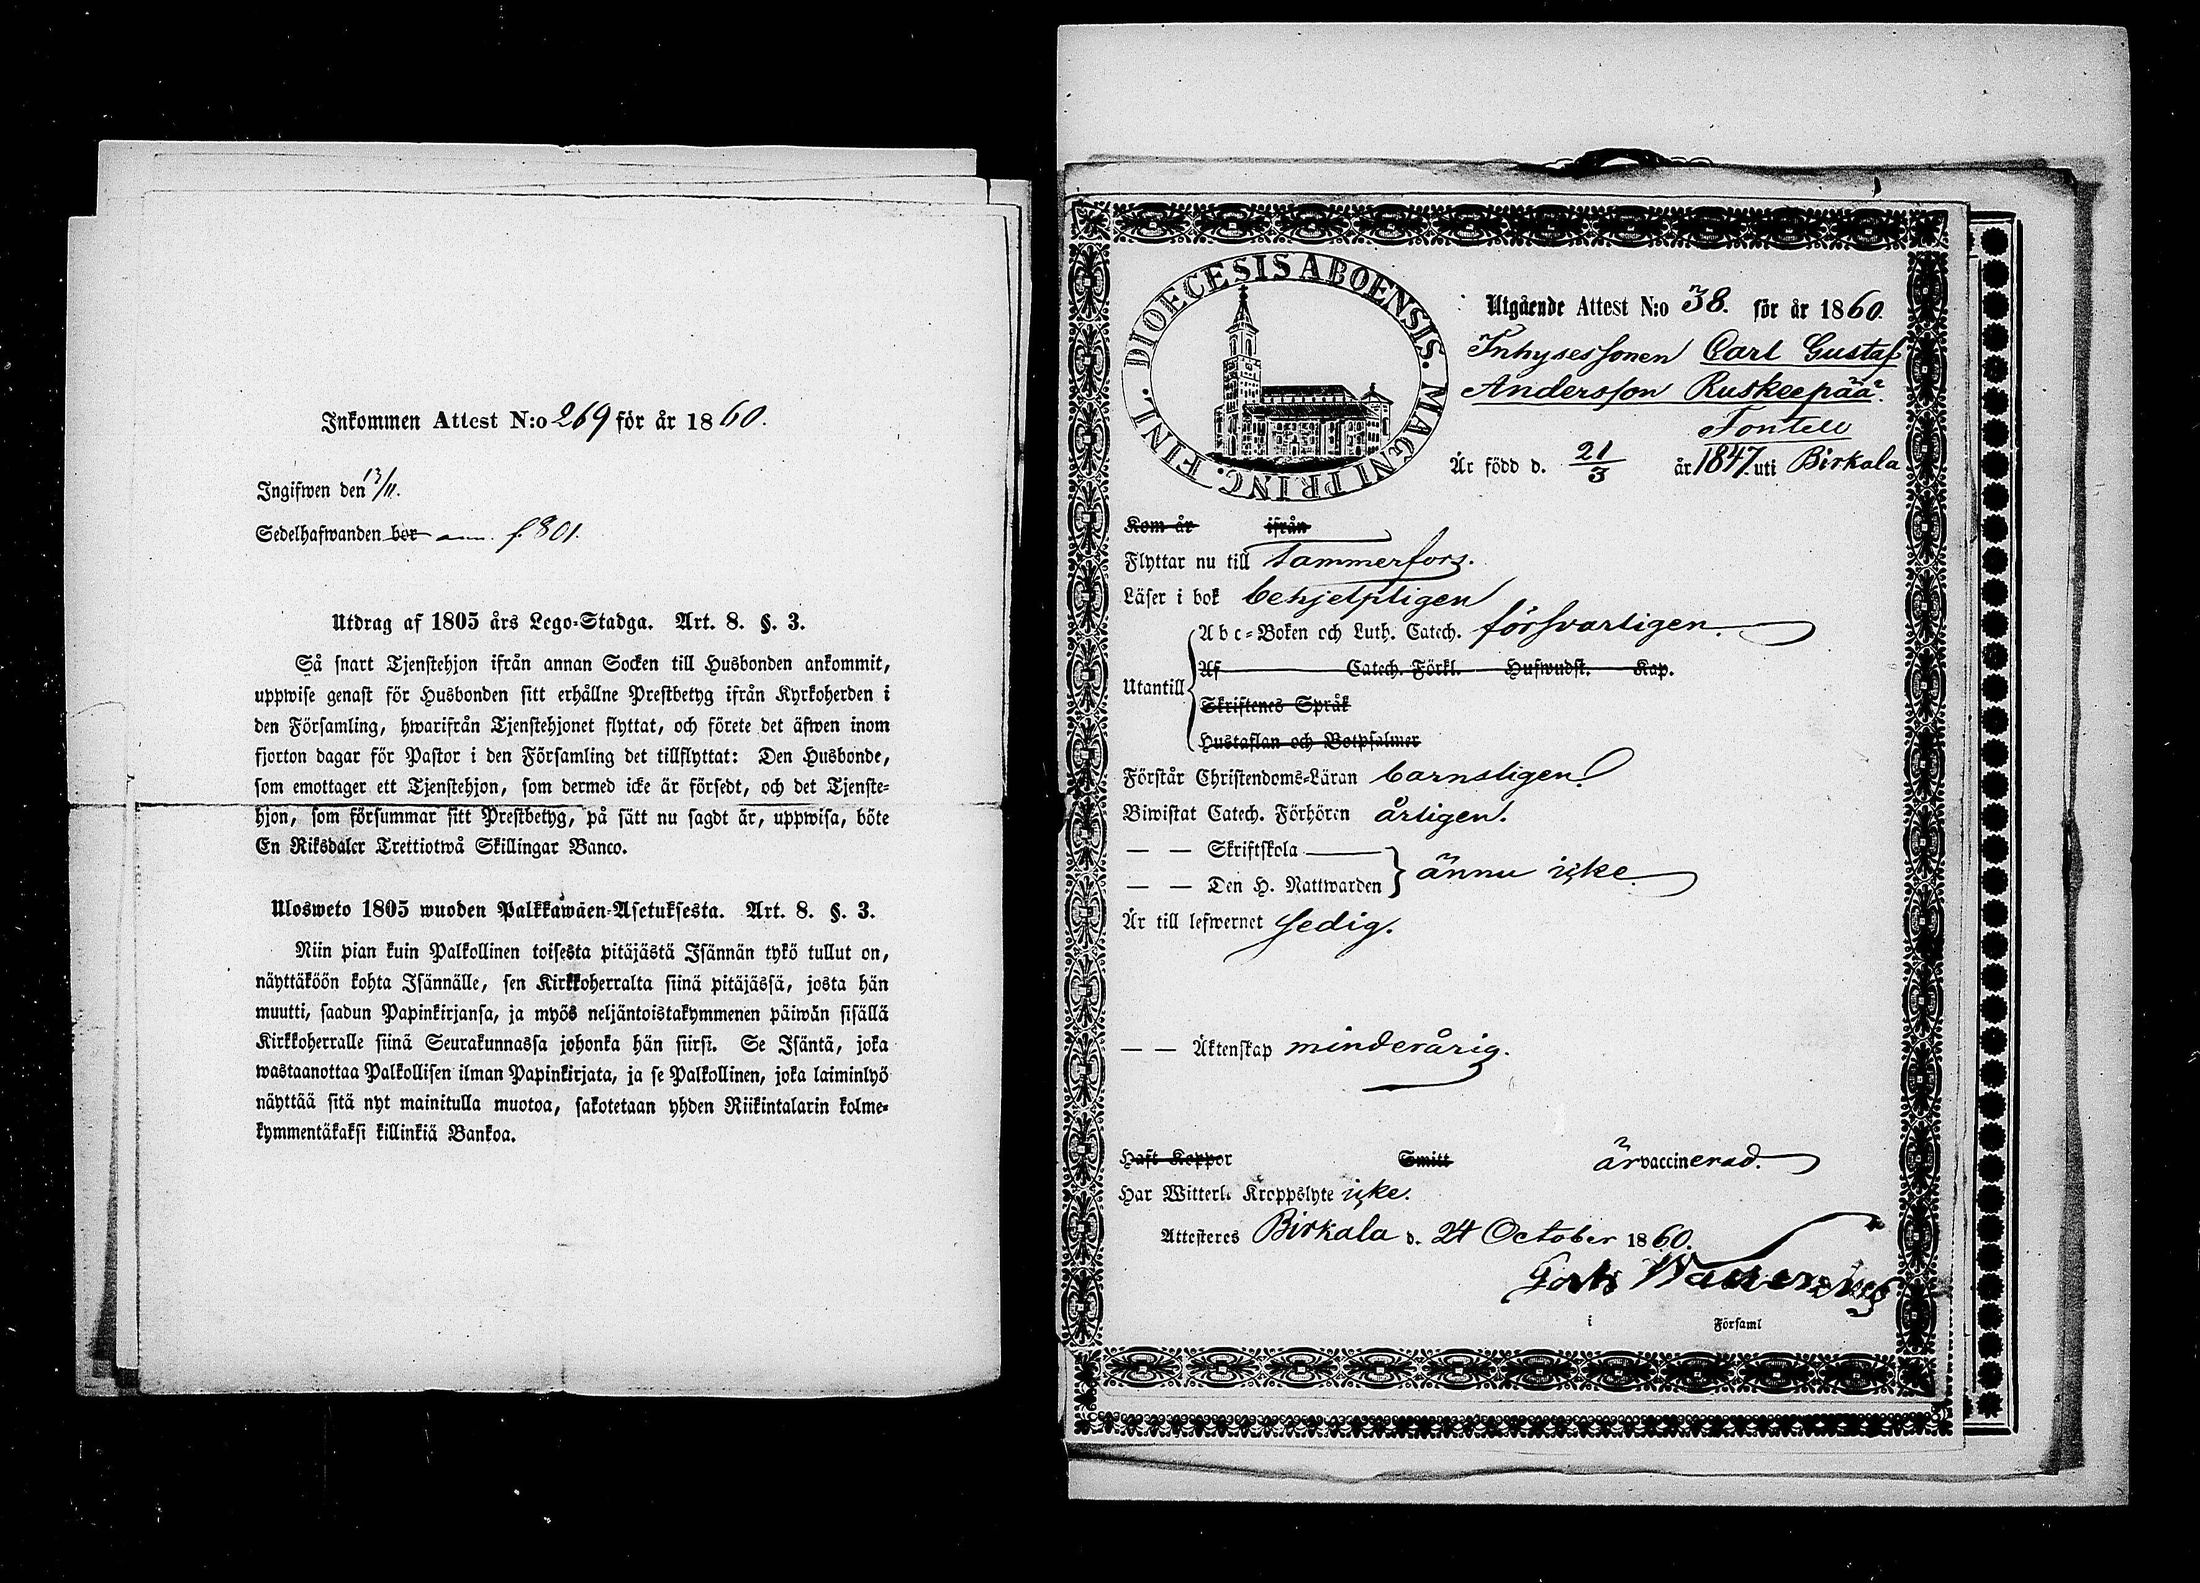 Inkommen Attest N:o 269 för år 1860.
Ingifwen den 13/11.
Sedelhafwanden bor ann. f. 801.
Utdrag af 1805 års Lego-Stadga. Art. 8. §. 3.
Så snart Tjenstehjon ifrån annan Socken till Husbonden ankommit,
uppwise genast för Husbonden sitt erhållne Prestbetyg ifrån Kyrkoherden i
den Församling, hwarifrån Tjenstehjonet flyttat, och förete det äfwen inom
fjorton dagar för Pastor i den Församling det tillflyttat: Den Husbonde,
som emottager ett Tjenstehjon, som dermed icke är försedt, och det Tjenste-
hjon, som försummar sitt Prestbetyg, på sätt nu sagdt är, uppwisa, böte
En Riksdaler Trettiotwå Skillingar Banco.
Ulosweto 1805 wuoden Palkkawäen-Asetuksesta. Art. 8. §. 3.
Niin pian kuin Palkollinen toisesta pitäjästä Isännän tykö tullut on,
näyttäköön kohta Isännälle, sen Kirkkoherralta siinä pitäjässä, josta hän
muutti, saadun Papinkirjansa, ja myös neljäntoistakymmenen päiwän sisällä
Kirkkoherralle siinä Seurakunnassa johonka hän siirsi. Se Isäntä, joka
wastaanottaa Palkollisen ilman Papinkirjata, ja se Palkollinen, joka laiminlyö
näyttää sitä nyt mainitulla muotoa, sakotetaan yhden Riikintalarin kolme-
kymmentäkaksi killinkiä Bankoa.
DIOECESIS ABOENSIS. MAGNI PRINC. FINL.
Utgående Attest N:o 38. för år 1860.
Inhysessonen Carl Gustaf
Andersson Ruskeepää
Fontell
Är född d. 21/3 år 1847 uti Birkala
Kom år ifrån
Flyttar nu till Tammerfors.
Läser i bok behjelpligen
Abc-Boken och Luth. Catech. försvarligen.
Af Catech. Förkl. Hufwudst. Kap.
Utantill
Skriftenes Språk
Hustaflan och Botpsalmer
Förstår Christendoms-Läran barnsligen
Biwistat Catech. Förhören årligen.
— — Skriftskola
— — Den H. Nattwarden ännu icke.
Är till lefwernet sedig.
— — Äktenskap minderårig.
Haft Koppor Smitt är vaccinerad.
Har Witterl. Kroppslyte icke.
Attesteres Birkala d. 24 October 1860.
i Församl